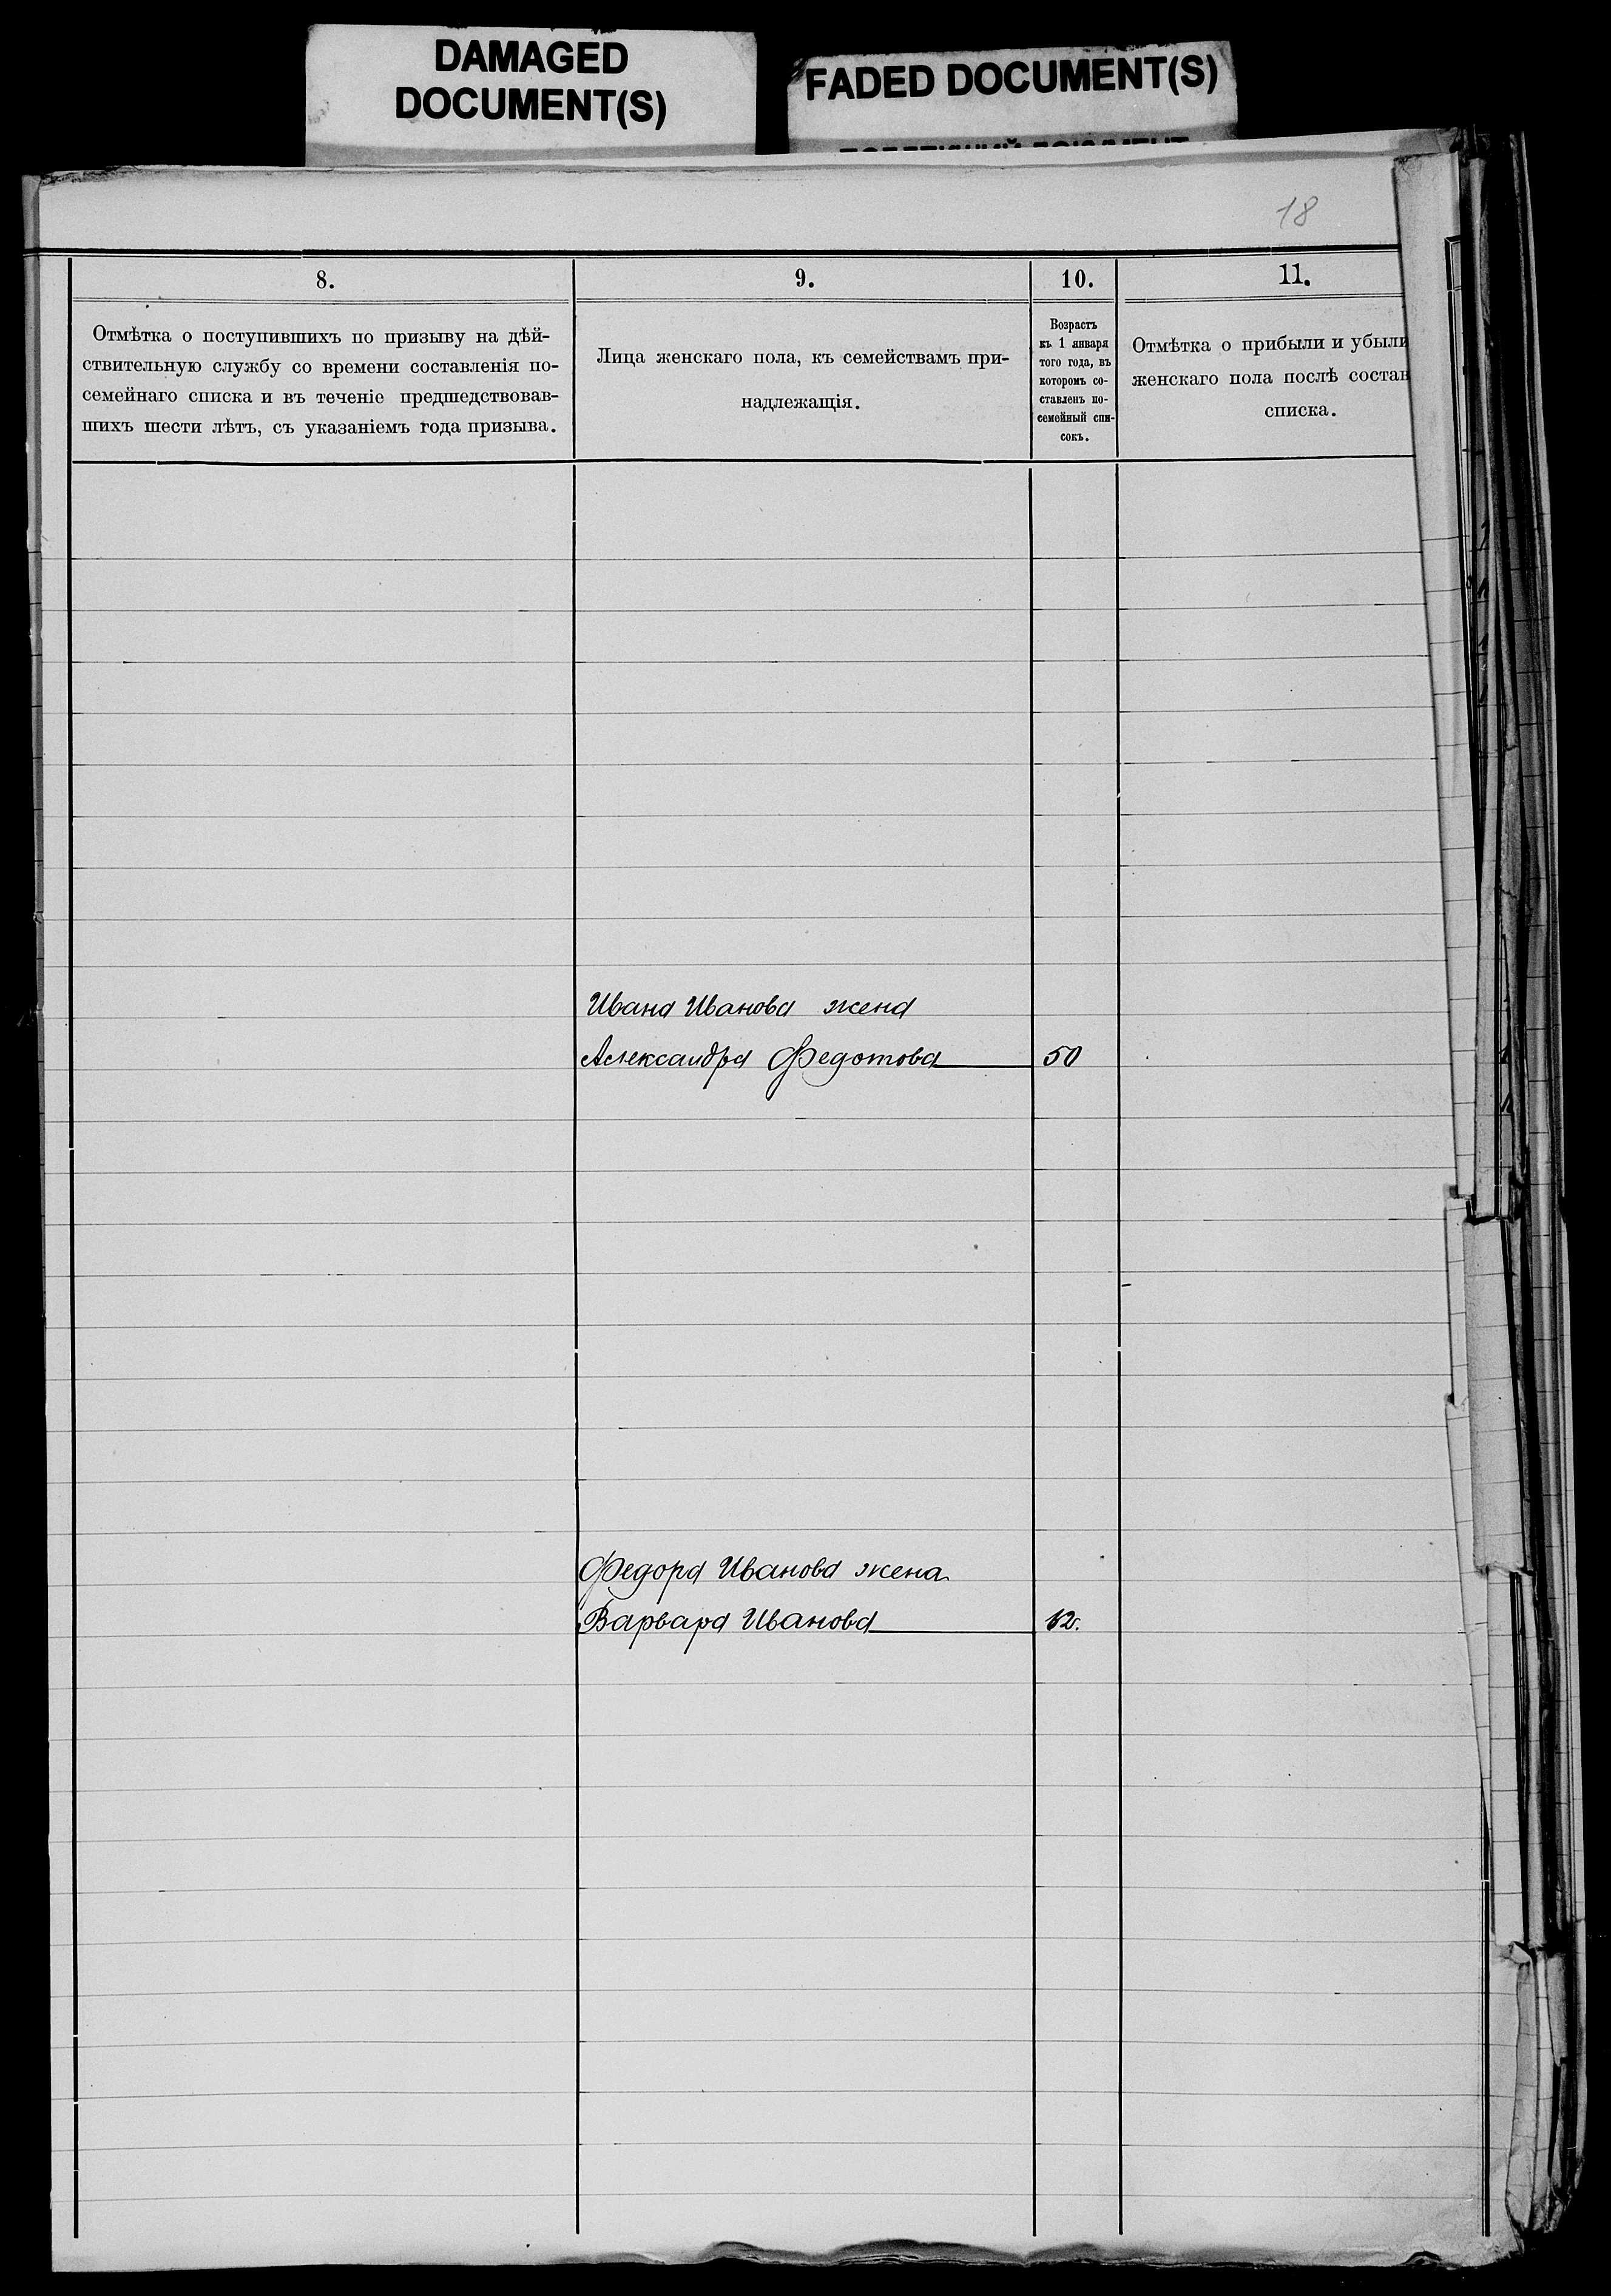 DAMAGED
DOCUMENT(S)
FADED DOCUMENT(S)
18
8.
Отмѣтка о поступившихъ по призыву на дѣй-
ствительную службу со времени составленія по-
семейнаго списка и въ теченіе предшедствовав-
шихъ шести лѣтъ, съ указаніемъ года призыва.
9.
Лица женскаго пола, къ семействамъ при-
надлежащія.
10.
Возрастъ
къ 1 января
того года, въ
которомъ со-
ставленъ по-
семейный спи-
сокъ.
11.
Отмѣтка о прибыли и убыли
женскаго пола послѣ состав
списка.
Ивана Иванова жена
Александра Федотова 50
Федора Иванова жена
Варвара Иванова